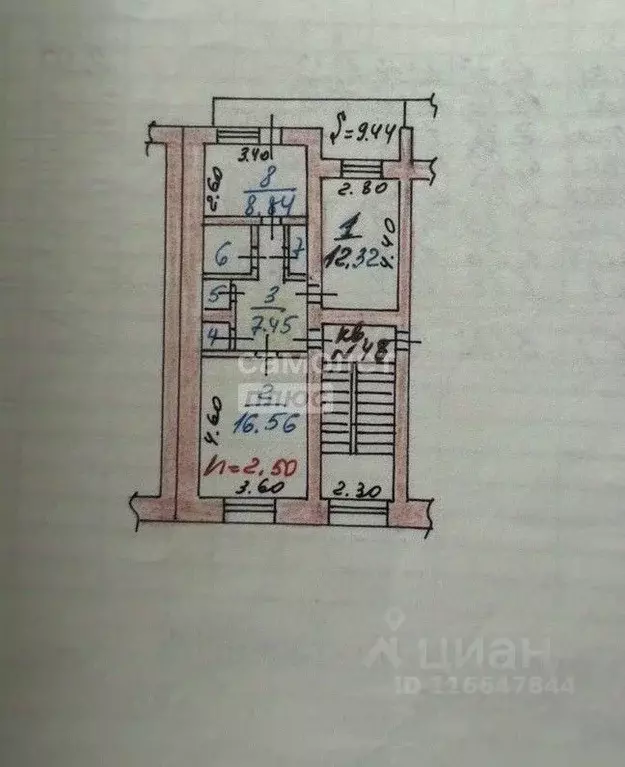 S=9.44
3.40
2.60
8
8.84
2.80
1
12.32
4.40
6
7
5
3
7.45
4
кв
N 48
самолет
плюс
2
16.56
4.60
h=2.50
3.60
2.30
циан
ID 116647844